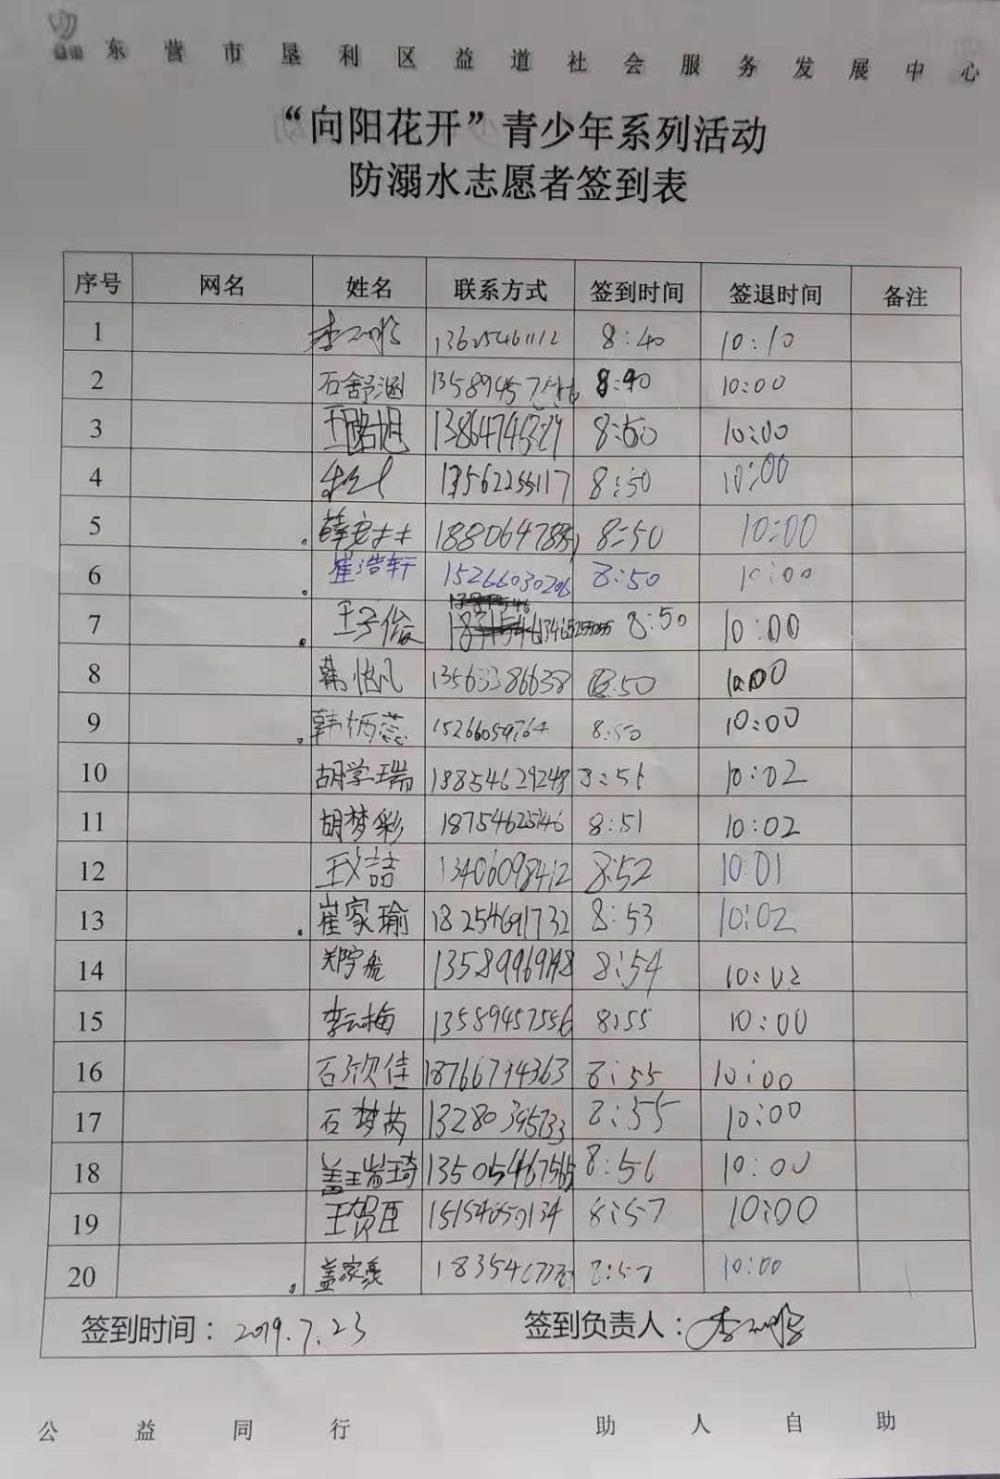 东营市垦利区益道社会服务发展中心
“向阳花开”青少年系列活动
防溺水志愿者签到表
序号 网名 姓名 联系方式 签到时间 签退时间 备注
1 13625461112 8:40 10:10
2 石舒涵 8:40 10:00
3 8:50 10:00
4 13562255117 8:50 10:00
5 8:50 10:00
6 崔浩轩 15266030206 8:50 10:00
7 王子俊 8:50 10:00
8 韩 凡 13563386638 8:50 10:00
9 韩炳蕊 15266059764 8:50 10:00
10 胡学瑞 18854629248 8:51 10:02
11 胡梦彩 18754625146 8:51 10:02
12 13406098412 8:52 10:01
13 崔家瑜 18254691732 8:53 10:02
14 8:54 10:02
15 李云梅 13589457556 8:55 10:00
16 石欣佳 18766714363 8:55 10:00
17 石梦芮 8:55 10:00
18 8:56 10:00
19 王贺臣 15154650134 8:57 10:00
20 盖家豪 8:57 10:00
签到时间：2019.7.23 签到负责人：
公益同行 助人自助